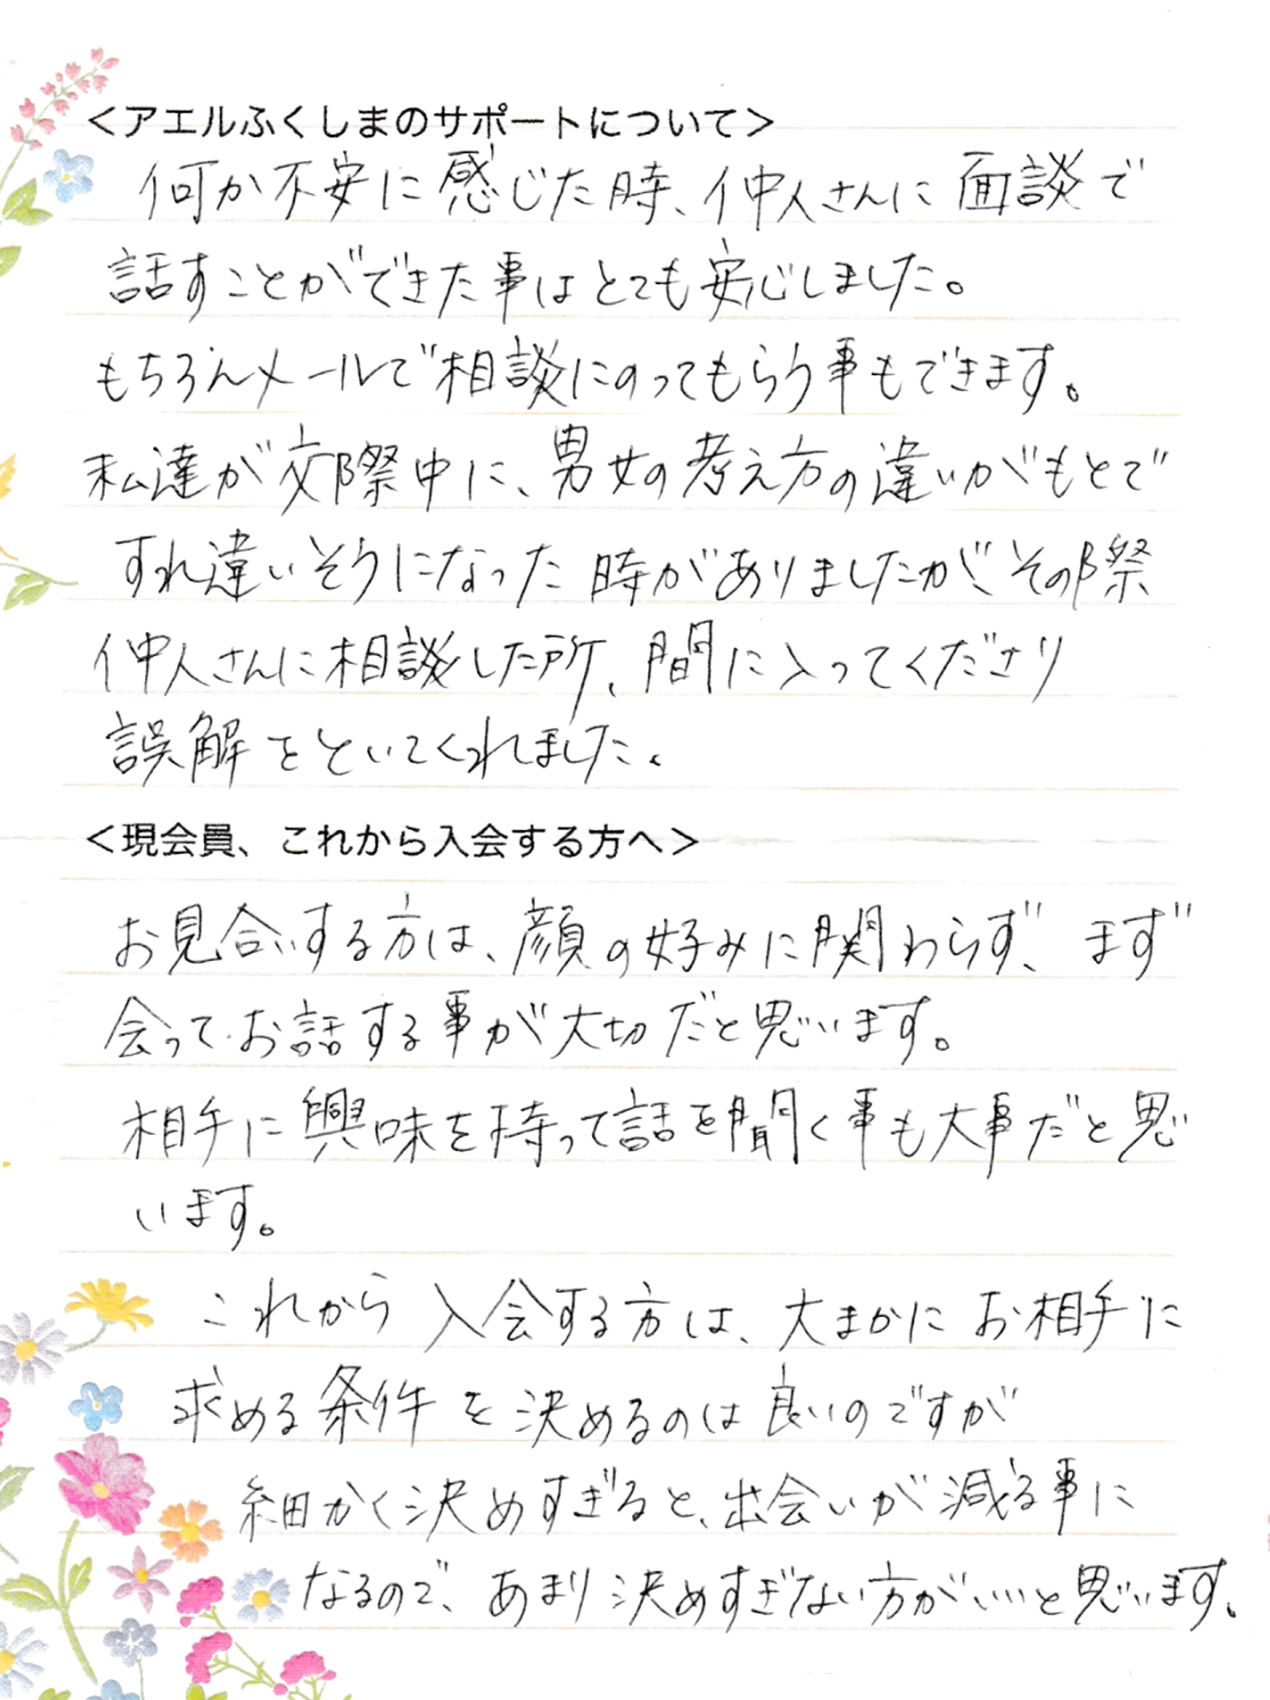 ＜アエルふくしまのサポートについて＞
何か不安に感じた時、仲人さんに面談で
話すことができた事はとても安心しました。
もちろんメールで相談にのってもらう事もできます。
私達が交際中に、男女の考え方の違いがもとで
すれ違いそうになった時がありましたが、その際
仲人さんに相談した所、間に入ってくださり
誤解をといてくれました。
＜現会員、これから入会する方へ＞
お見合いする方は、顔の好みに関わらず、まず
会ってお話する事が大切だと思います。
相手に興味を持って話を聞く事も大事だと思
います。
これから入会する方は、大まかにお相手に
求める条件を決めるのは良いのですが
細かく決めすぎると、出会いが減る事に
なるので、あまり決めすぎない方がいいと思います。